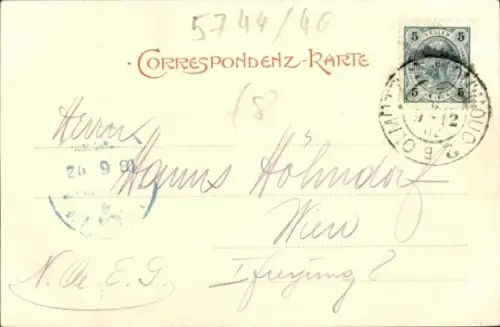 5744/46
CORRESPONDENZ-KARTE
5 HELLER 5
5 5
OLMÜTZ 2
(8
Herrn
Hanns Höhndorf
Wien
I freyung 8
N. Oe. E. G.